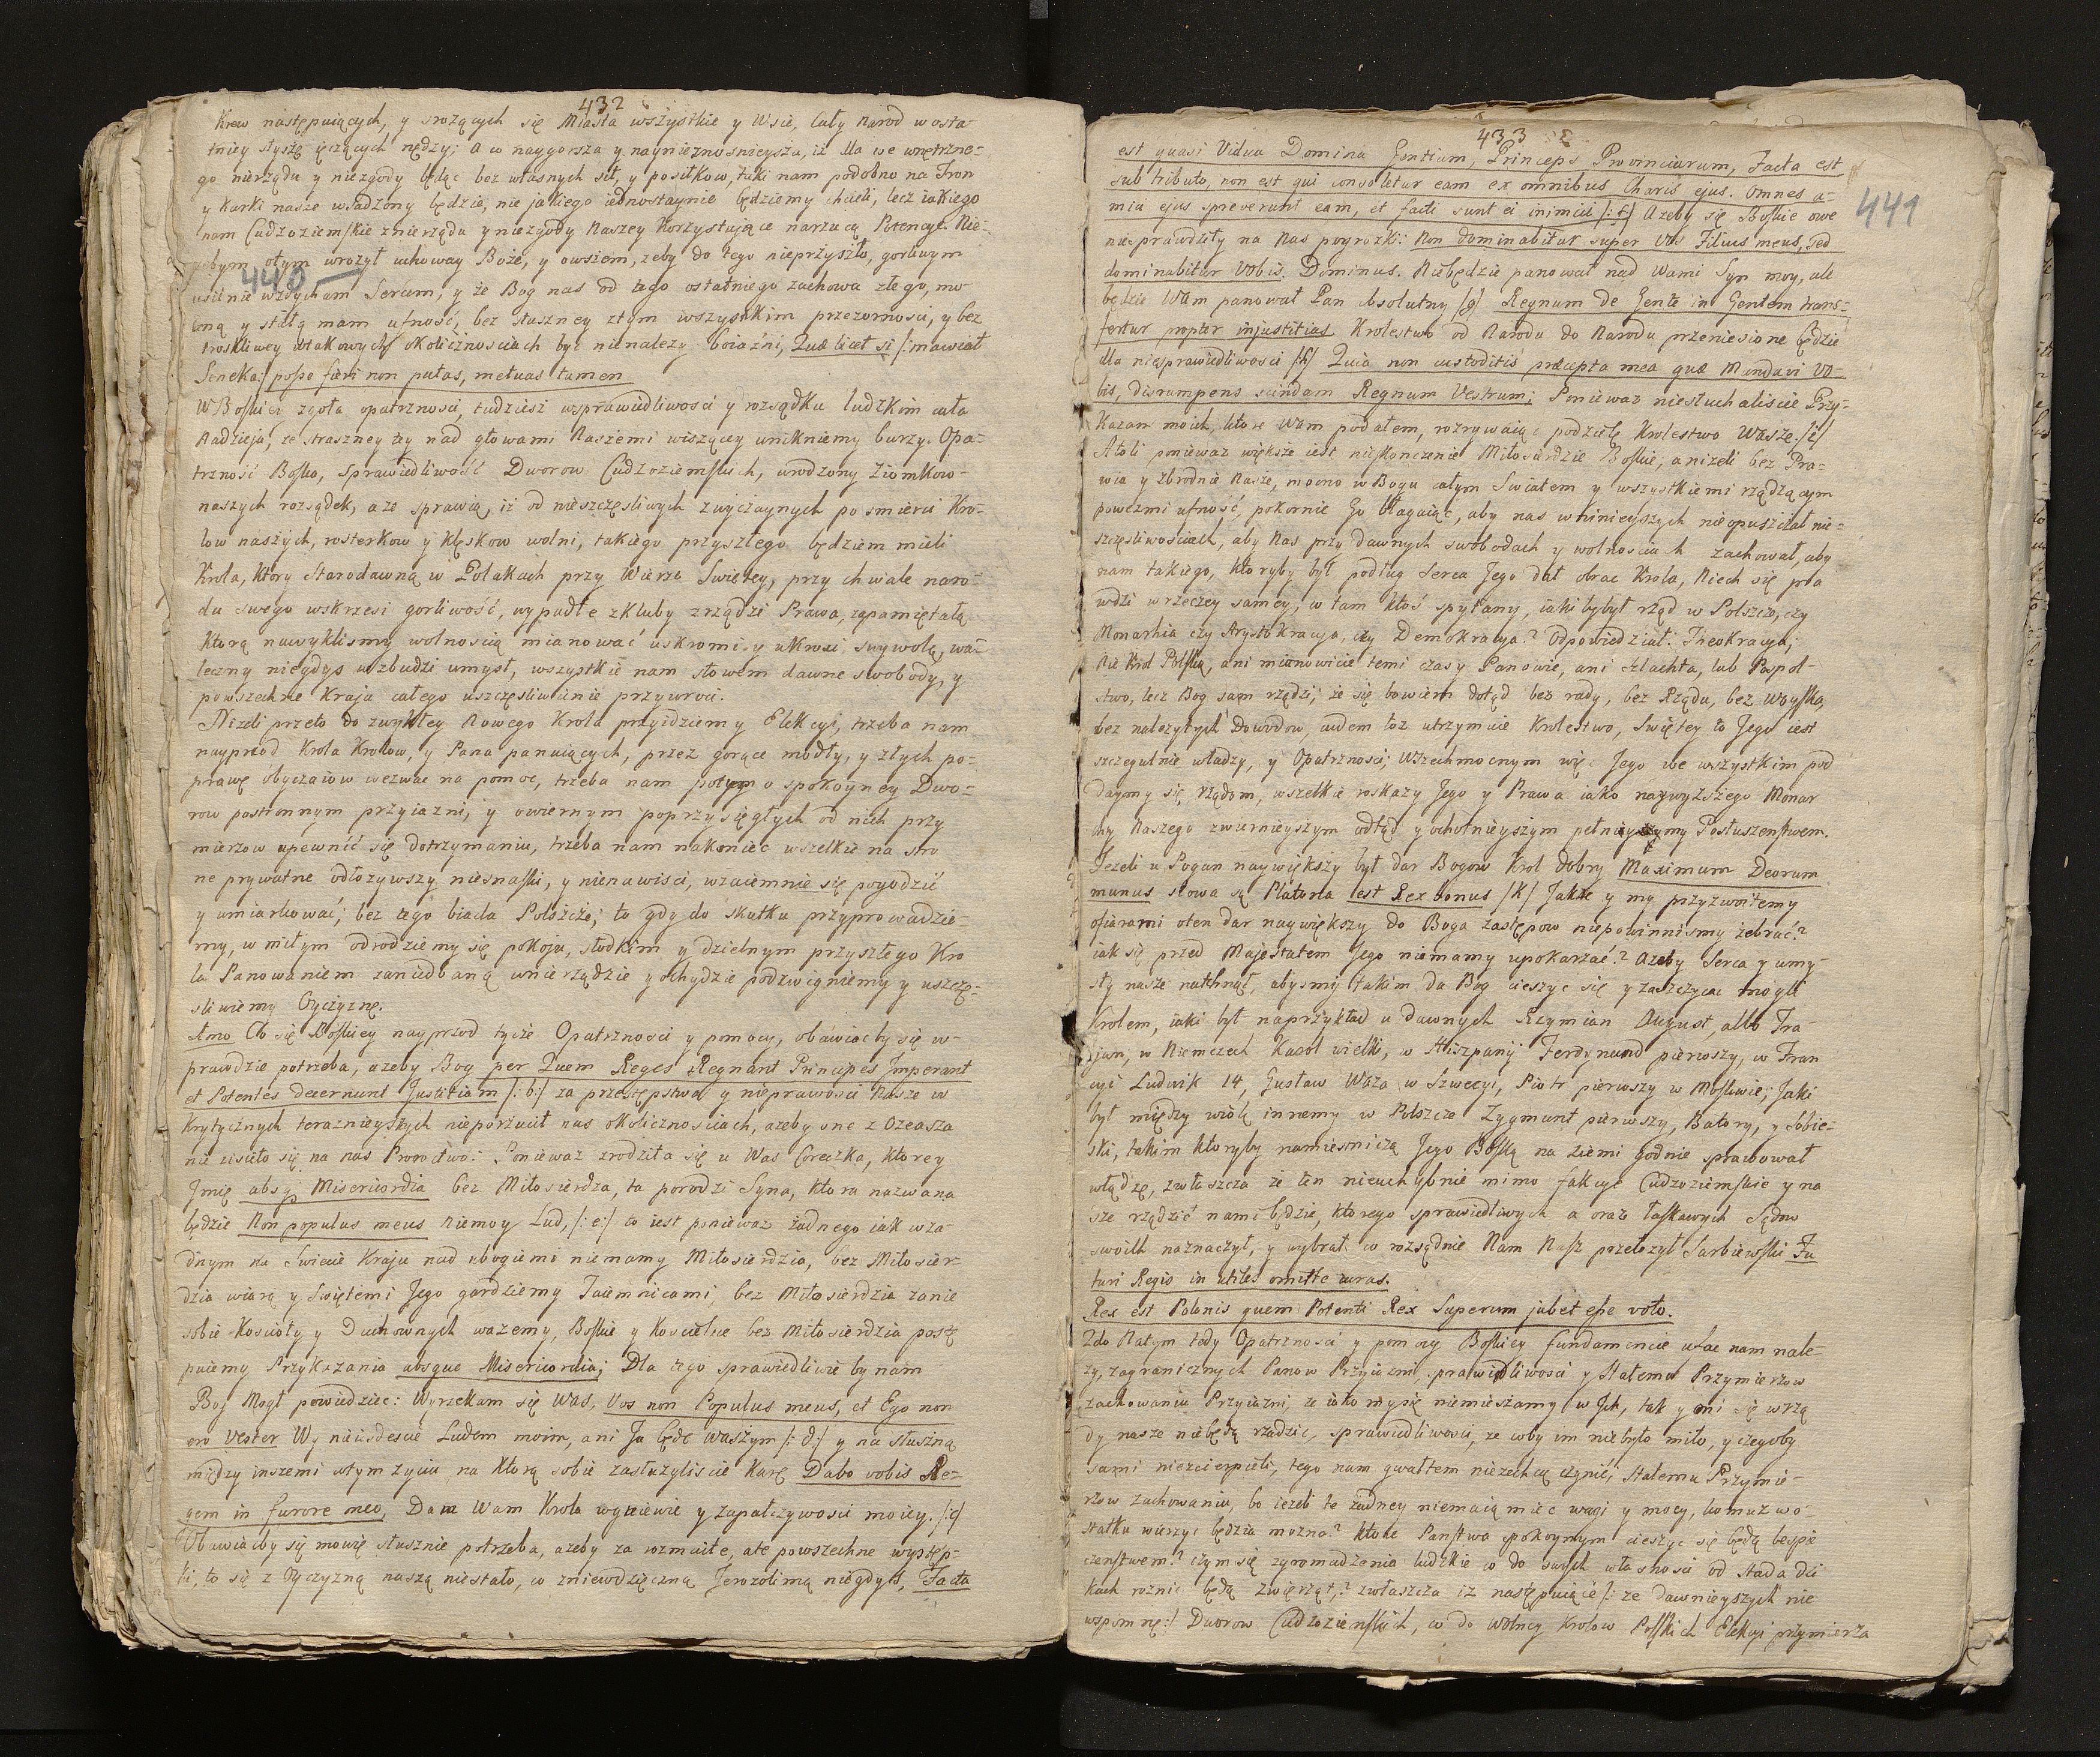 432
Krew następuiących, y srożących się Miasta wszystkie y Wsie, cały Narod w osta-
tniey słyszę ięczących nędzy; a co naygorsza y naynieznosnieysza, iż dla we wnętrzne-
go nierządu y niezgody będąc bez własnych sił, y posiłkow, taki nam podobno na Tron
y Karki nasze wsadzony będzie, nie jakiego iednostaynie będziemy chcieli, lecz iakiego
nam Cudzoziemskie znierządu y niezgody Naszey Korzystujące narzucą Potencye. Nie-
żebym otym wrożył uchoway Boże, y owsiem, żeby do tego nieprzyszło, gorliwym
440
usilnie wzdycham Sercem, y że Bog nas od tego ostatniego zachowa złego, mo-
cną y stałą mam ufność, bez słuszney ztym wszystkim przezornosci, y bez
troskliwey wtakowych okolicznosciach być nienależy boiaźni, Quæ licet si /: mawiał
Seneka :/ posse fieri non putas, metuas tamen
W Boskiey zgoła opatrznosci, tudziesz wsprawiedliwosci y rozsądku ludzkim cała
Nadzieja, że straszney tey nad głowami Naszemi wiszącey unikniemy burzy. Opa-
trzność Boska, sprawiedliwość Dworow Cudzoziemskich, wrodzony Ziomkow
naszych rozsądek, aże sprawią, iż od nieszczęsliwych zwyczaynych po smierci Kro-
low naszych, rosterkow y klęskow wolni, takiego przyszłego będziem mieli
Krola, ktory starodawną w Polakach przy Wierze Swiętey, przy chwale naro-
du swego wskrzesi gorliwość, wypadłe zkluby zrządzi Prawa, zapamiętałą
ktorą nawyklismy wolnoscią mianować uskromi y ukroci swywolą, wa-
leczny niegdys wzbudzi umysł, wszystkie nam słowem dawne swobody, y
powszechne Kraju całego uszczęsliwienie przywroci.
Niżeli przeto do zwykłey Nowego Krola przyidziemy Elekcyi, trzeba nam
nayprzod Krola Krolow, y Pana panuiących, przez gorące modły, y złych po-
prawę obyczaiow wezwać na pomoc, trzeba nam potym o spokoyney Dwo-
row postronnym przyiazni, y owiernym poprzysięgłych od nich przy
mierzow upewnić się dotrzymaniu, trzeba nam nakoniec wszelkie na stro
ne prywatne odłożywszy niesnaski, y nienawisci, wzaiemnie się pogodzić
y umiarkować; bez tego biada Polszcze; to gdy do skutku przyprowadzie-
my, w miłym odrodziemy się pokoju, słodkim y dzielnym przyszłego Kro
la Panowaniem zaniedbaną wnierządzie y ochydzie podzwigniemy y uszczę-
sliwiemy Oyczyznę.
1mo Co się Boskiey nayprzod tycze Opatrznosci y pomocy, obawiacby się w-
prawdzie potrzeba, ażeby Bog per Quem Reges Regnant Principes Imperant
et Potentes decernunt Justitiam /: b :/ za przestępstwa y nieprawosci Nasze w
Krytycznych teraznieyszych nieporzucił nas okolicznosciach, ażeby one z Ozeasza
nie ziściło się na nas Proroctwo: Ponieważ zrodziła się u Was Coreczka, ktorey
Jmię absq Misericordia bez Miłosierdza, ta porodzi Syna, ktora nazwana
będzie Non populus meus niemoy Lud, /: c :/ to iest ponieważ żadnego iak wża-
dnym na Swiecie Kraju nad ubogiemi niemamy Miłosierdzia, bez Miłosier-
dzia wiarą y Swiętemi Jego gardziemy Taiemnicami, bez Miłosierdzia zanie
sobie Koscioły y Duchownych ważemy, Boskie y Koscielne bez Miłosierdzia postę
puiemy Przykazania absque Misericordia; Dla tego sprawiedliwie by nam
Bog Mogł powiedzieć: Wyrzekam się Was, Vos non Populus meus, et Ego non
ero Vester Wy nieiesdescie Ludem moim, ani Ja będę Waszym /: d :/ y na słuszną
między inszemi wtym życiu na ktorą sobie zasłużyliscie Karę Dabo vobis Re-
gem in furore meo, Dam Wam Krola wgniewie y zapalczywosci moiey. /: e/
Obawiaćby się mowię słusznie potrzeba, ażeby za rozmaite, ale powszechne występ-
ki, to się z Oyczyzną naszą niestało, co zniewdzięczną Jerozolimą niegdyś, Facta
433
est quasi Vidua Domina Gentium, Princeps Provinciarum, Facta est
sub tributo, non est qui consoletur eam ex omnibus Charis ejus. Omnes a-
mici ejus spreverunt eam, et facti sunt ei inimici /: f/ Ażeby się Boskie owe
441
niesprawdziły na Nas pogrożki: Non dominabitur super Vos Filius meus, sed
dominabitur Vobis. Dominus. Niebędzie panował nad Wami Syn moy, ale
będzie Wam panował Pan absolutny /g/ Regnum de Gente in Gentem trans-
fertur propter injustitias Krolestwo od Narodu do Narodu przeniesione będzie
dla niesprawiedliwosci /h/ Quia non custoditis præcepta mea quæ Mandavi Vo-
bis, Disrumpens scindam Regnum Vestrum; Ponieważ niesłuchaliscie Przy-
Kazan moich, ktore Wam podałem, rozrywaiąc podzielę Krolestwo Wasze. /i/
Atoli ponieważ większe iest nieskonczenie Miłosierdzie Boskie, aniżeli bez Pra-
wia y zbrodnie Nasze, mocno w Bogu całym Swiatem y wszystkiemi rządzącym
powezmi ufność, pokornie Go błagaiąc, aby nas w ninieyszych nieopuszczał nie-
szczęsliwosciach, aby Nas przy dawnych swobodach y wolnosciach zachował, aby
nam takiego, ktoryby był podług Serca Jego dał obrac Krola, Niech się pra
wdzi w rzeczey samey, co tam ktoś spytany, iaki bybył rząd w Polszcze, czy
Monarhia czy Arystokracya, czy Demokracya? Odpowiedział: Theokracya;
Nie Krol Polską, ani mianowicie temi czasy Panowie, ani szlachta, lub Pospol-
stwo, lecz Bog sam rządzi; że się bowiem dotąd bez rady, bez Rządu, bez Woyska,
bez należytych Dowodow, cudem toż utrzymuie Krolestwo, Swiętey to Jego iest
szczegulnie władzy, y Opatrznosci; Wszechmocnym więc Jego we wszystkim pod
daymy się, rządom, wszelkie roskazy Jego y Prawa iako naywyższego Monar
chy Naszego zwiernieyszym odtąd y ochotnieyszym pełniymy Posłuszenstwem.
Jezeli u Pogan naywiększy był dar Bogow Krol dobry Maximum Deorum
munus słowa są Platona est Rex bonus /K/ Jakże y my przyzwoitemy
ofiarami oten dar naywiększy do Boga zastępow niepowinnismy żebrać?
iak się przed Majestatem Jego niemamy upokarzać? ażeby Serca y umy-
sły nasze natchnął, abysmy takim da Bog cieszyć się y zaszczycac mogli
Krolem, iaki był naprzykład u dawnych Rzymian August, albo Tra-
jan, w Niemczech Karol wielki, w Hiszpanij Ferdynand pierwszy, w Fran
cyi Ludwik 14, Gustaw Waza w Szwecyi, Piotr pierwszy w Moskwie; Jaki
był między wielą innemy w Polszcze Zygmunt pierwszy, Batory, y Sobie-
ski, takim ktoryby namiesniczą Jego Boską na Ziemi godnie sprawował
władzę, zwłaszcza że ten nieuchybnie mimo fakcye Cudzoziemskie y na
sze rządzić nami będzie, ktorego sprawiedliwych a oraz łaskawych Sądow
swoich naznaczył, y wybrał. co rozsądnie Nam Nasz przełożył Sarbiewski Fu
turi Regis in utiles omitte curas.
Rex est Polonis quem Potenti Rex Superum jubet esse voto.
2do Natym tedy Opatrznosci y pomocy Boskiey fundamencie ufac nam nale-
ży, zagranicznych Panow Przyiazni, sprawiedliwosci y stałemu Przymierzow
zachowaniu Przyiazni, że iako mysię niemieszamy w Jch, tak y oni się wrzą
dy nasze niebędą rządzić, sprawiedliwosci, że coby im niebyło miło, y czegoby
sami niezcierpieli, tego nam gwałtem niezechcą czynić; stałemu Przymie-
rzow zachowaniu, bo ieżeli te żadney niemaią miec wagi y mocy, komuż wo-
statku wierzyc będzia można? ktore Panstwa spokoynym cieszyc się będą beśpie
czenstwem? czym się zgromadzenia ludzkie co do swych własnosci od stada dzi
kich rożnic będą zwierząt? zwłaszcza iż następuiące /: że dawnieyszych nie
wspomnę :/ Dworow Cudzoziemskich, co do wolney Krolow Polskich Elekcyi przymierza